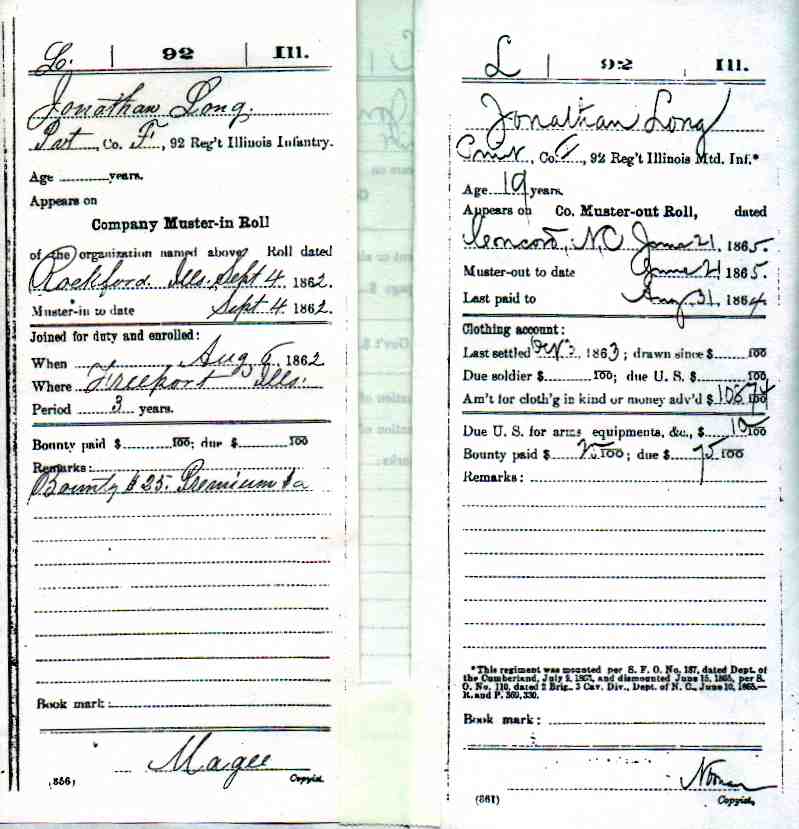 L. | 92 | Ill.
Jonathan Long.
Pvt, Co. F, 92 Reg't Illinois Infantry.
Age ........ years.
Appears on
Company Muster-in Roll
of the organization named above. Roll dated
Rockford Ills. Sept 4, 1862.
Muster-in to date Sept 4, 1862.
Joined for duty and enrolled:
When Aug 6, 1862
Where Freeport Ills.
Period 3 years.
Bounty paid $ ........ 100; due $ ........ 100
Remarks:
Bounty $25. Premium $2
Book mark:
Magee
(356) Copyist.
L | 92 | Ill.
Jonathan Long
, Co. F, 92 Reg't Illinois Mtd. Inf.*
Age 19 years.
Appears on Co. Muster-out Roll, dated
Concord, N.C. June 21, 1865.
Muster-out to date June 21, 1865.
Last paid to Aug 31, 1864.
Clothing account:
Last settled , 1863; drawn since $ ........ 100
Due soldier $ ........ 100; due U. S. $ ........ 100
Am't for cloth'g in kind or money adv'd $ 100
Due U. S. for arms, equipments, &c., $ 100
Bounty paid $ 25 100; due $ 75 100
Remarks:
*This regiment was mounted per S. F. O. No. 187, dated Dept. of
the Cumberland, July 9, 1863, and dismounted June 15, 1865, per S.
O. No. 110, dated 2 Brig., 3 Cav. Div., Dept. of N. C., June 10, 1865.—
R. and P. 369,330.
Book mark:
(361) Copyist.